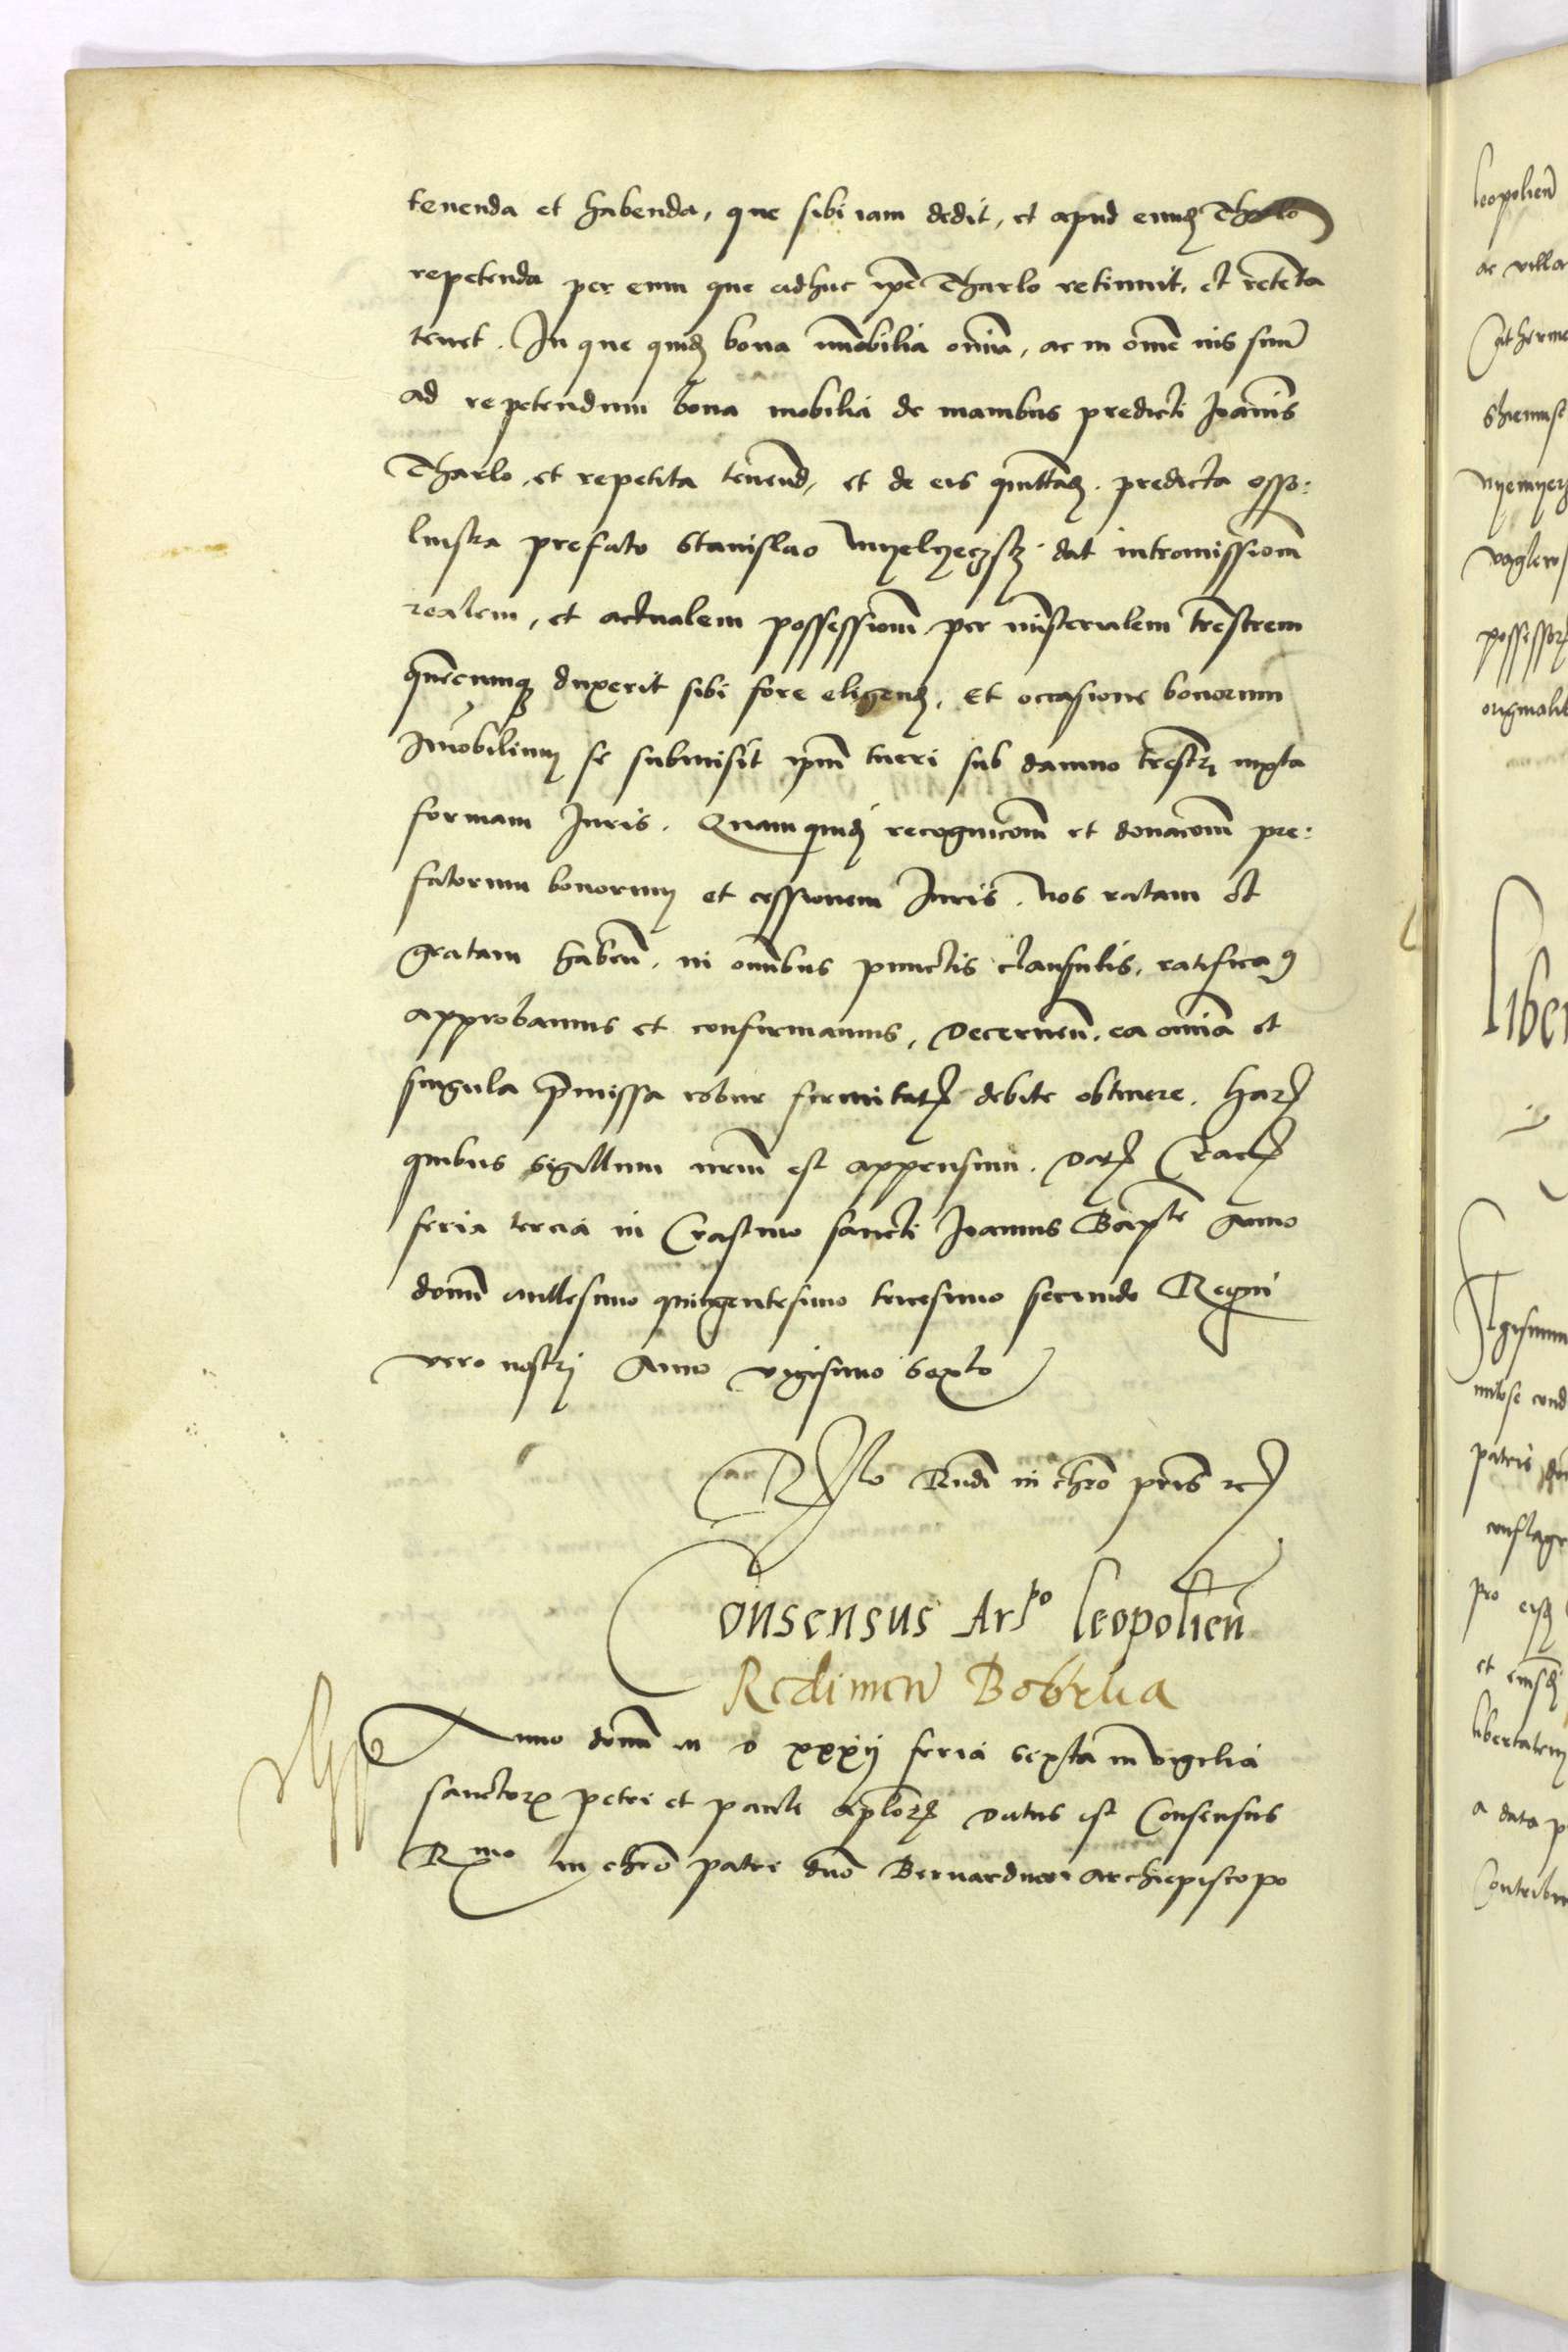 tenenda et habenda, que sibi iam dedit, et apud eundẽ Tharlo
repetenda per eum que adhuc ipẽ Tharlo retinuit, et retẽta
tenet. In que quidẽ bona im̃obilia om̃ia, ac in om̃e ius suũ
ad repetendum bona mobilia de manibus predicti Ioañis
Tharlo, et repetita tenend, et de eis quittañd. predicta Osso:
linska prefato Stanislao Myelyeczsky dat intromissionẽ
realem, et actualem possessionẽ, per ministerialem trẽstrem
quẽcumqꝫ duxerit sibi fore eligend, Et occasione bonorum
Im̃obilium se submisit ipm̃ tueri sub damno trẽstri iuxta
formam Iuris. Quamquidẽ recognicoñm et donacoñm pre:
fatorum bonorum et cessionem Iuris, nos ratam et
gratam habeñ, in om̃ibus punctis clausulis, ratificaꝰ
approbamus et confirmamus, Decerneñ, ea om̃ia et
singula p̃missa robur firmitatꝭ debite obtinere. Harꝭ
quibus sigillum nrm̃ est appensum. Datꝭ Cracꝭ
feria tercia in Crastino sancti Ioannis Bap̃te Anno
domĩ millesimo quingentesimo tricesimo secundo Regni
vero nostri Anno vigesimo sexto
Rl̃o Rndĩ in chr̃o pr̃is etcꝭ
Consensus Ar͡po Leopolieñ
Redimeñ Bobrka
Anno domĩ M D xxxij feria sexta in vigilia
sanctorꝝ petri et pauli ap̃lorꝝ Datus est Consensus
Rᵐᵒ in chr̃o patri dnõ Bernardino archiepiscopo
leopolieñ
ac villa
possessor
original
Liber
patris
pro
et eiusd
libertatem
a data p
Contribu